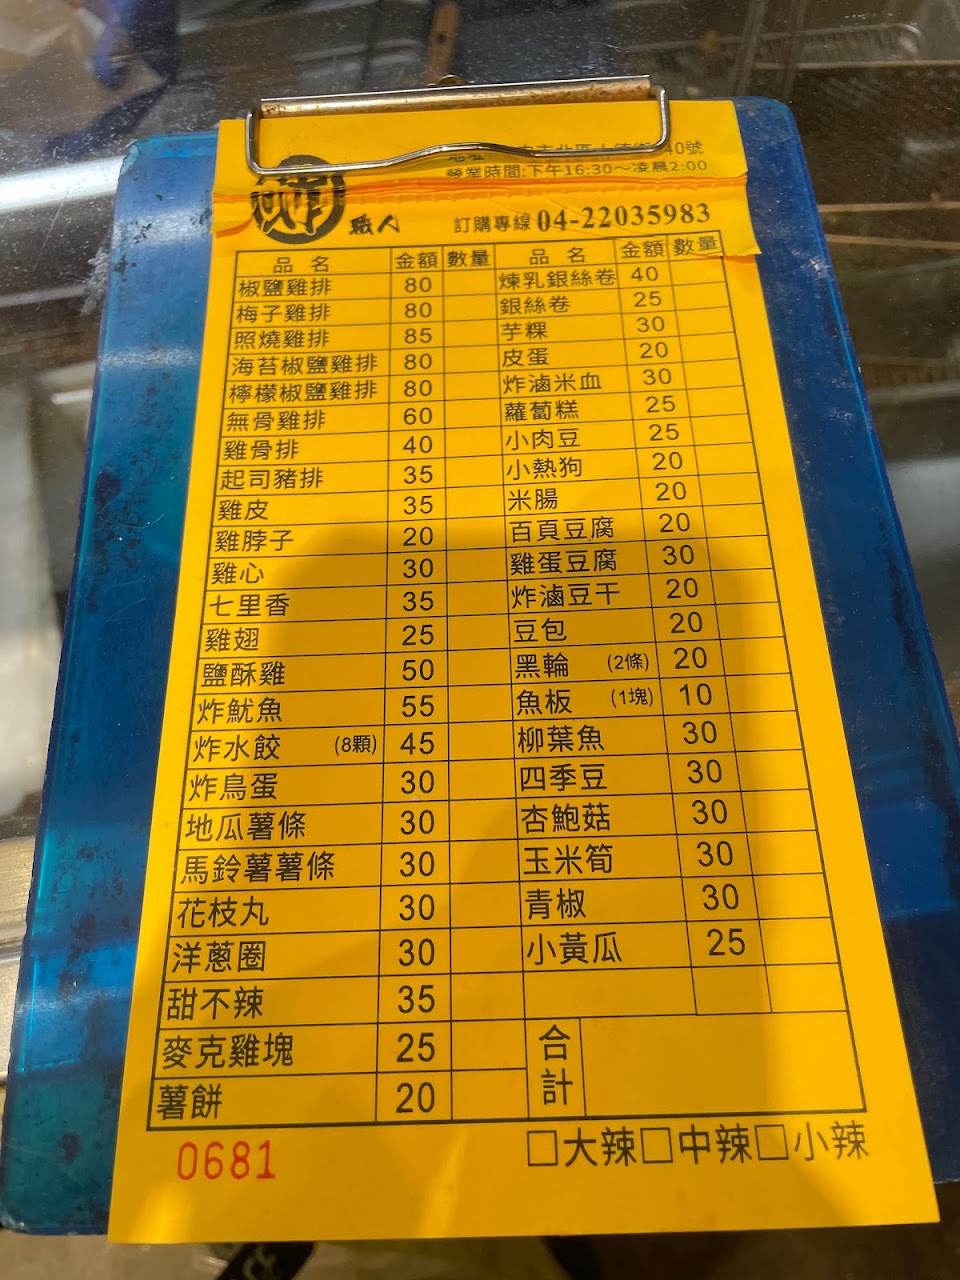 40號
營業時間:下午16:30~凌晨2:00
職人
訂購專線 04-22035983
品 名 金額 數量 品 名 金額 數量
椒鹽雞排 80 煉乳銀絲卷 40
梅子雞排 80 銀絲卷 25
照燒雞排 85 芋粿 30
海苔椒鹽雞排 80 皮蛋 20
檸檬椒鹽雞排 80 炸滷米血 30
無骨雞排 60 蘿蔔糕 25
雞骨排 40 小肉豆 25
起司豬排 35 小熱狗 20
雞皮 35 米腸 20
雞脖子 20 百頁豆腐 20
雞心 30 雞蛋豆腐 30
七里香 35 炸滷豆干 20
雞翅 25 豆包 20
鹽酥雞 50 黑輪 (2條) 20
炸魷魚 55 魚板 (1塊) 10
炸水餃 (8顆) 45 柳葉魚 30
炸鳥蛋 30 四季豆 30
地瓜薯條 30 杏鮑菇 30
馬鈴薯薯條 30 玉米筍 30
花枝丸 30 青椒 30
洋蔥圈 30 小黃瓜 25
甜不辣 35
麥克雞塊 25 合計
薯餅 20
0681 □大辣□中辣□小辣